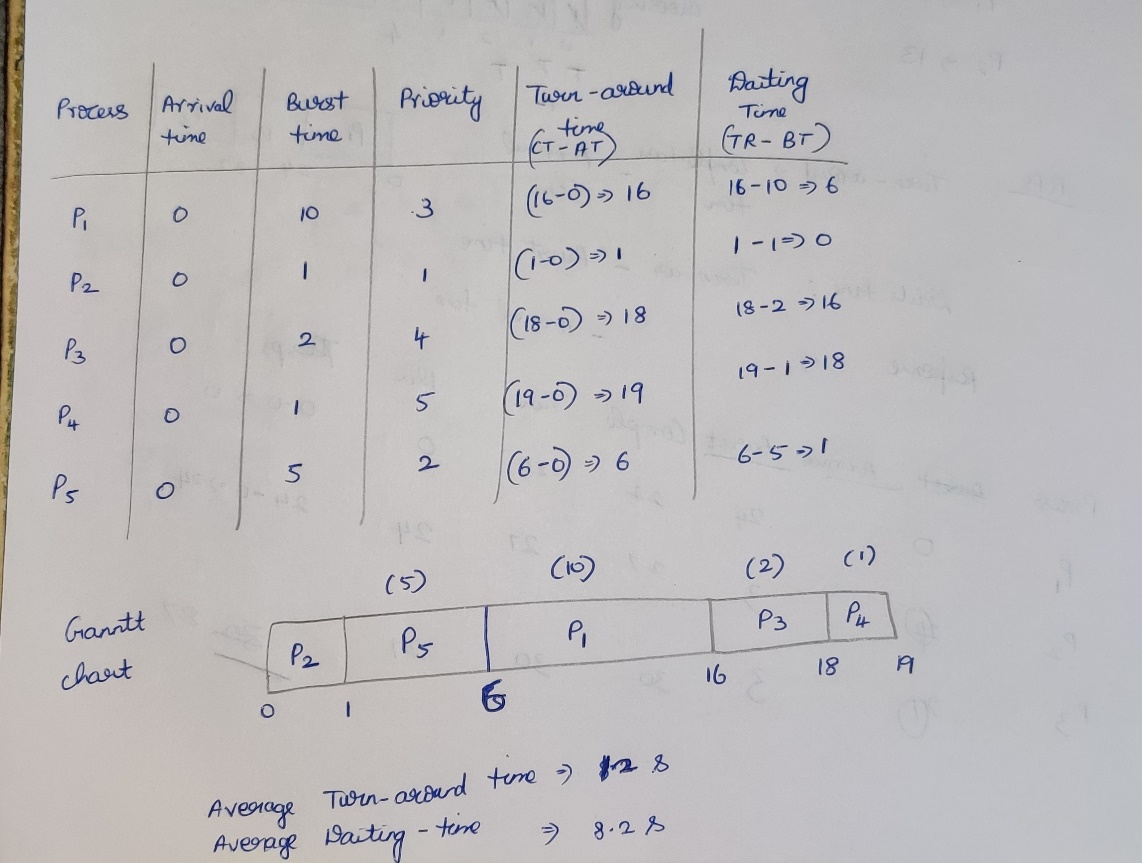 Process Arrival time Burst time Priority Turn-around time (CT-AT) Waiting Time (TR-BT)
P1 0 10 3 (16-0)⇒ 16 16-10 ⇒ 6
P2 0 1 1 (1-0)⇒ 1 1-1⇒ 0
P3 0 2 4 (18-0) ⇒ 18 18-2 ⇒ 16
P4 0 1 5 (19-0) ⇒ 19 19-1 ⇒ 18
P5 0 5 2 (6-0) ⇒ 6 6-5 ⇒ 1
(5) (10) (2) (1)
Ganntt chart P2 P5 P1 P3 P4
0 1 6 16 18 19
Average Turn-around time ⇒ 12 s
Average Waiting-time ⇒ 8.2 s